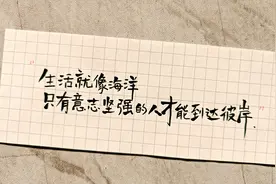 生活就像海洋
只有意志坚强的人才能到达彼岸.